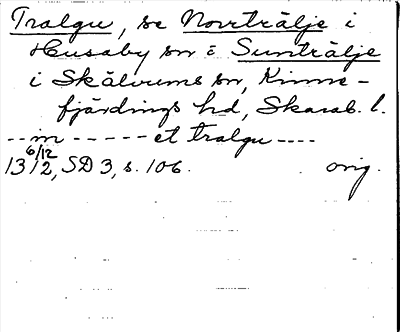 Tralgu, se Norrträlje i
Husaby sn o Sunträlje
i Skälvums sn, Kinne-
fjärdings hd, Skarab. l.
-- m ----- et tralgu ----
13 6/12 12, SD 3, s. 106. orig.